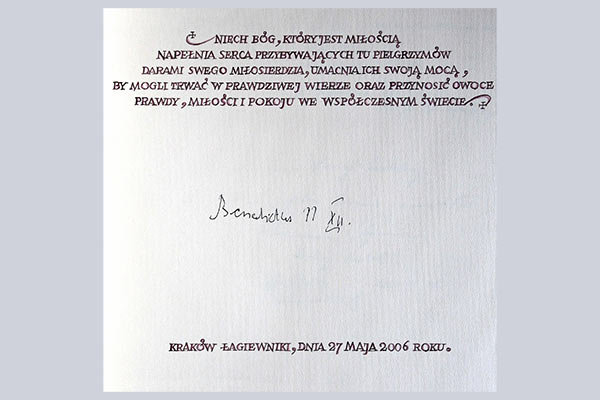 NIECH BÓG, KTÓRY JEST MIŁOŚCIĄ
NAPEŁNIA SERCA PRZYBYWAJĄCYCH TU PIELGRZYMÓW
DARAMI SWEGO MIŁOSIERDZIA, UMACNIA ICH SWOJĄ MOCĄ,
BY MOGLI TRWAĆ W PRAWDZIWEJ WIERZE ORAZ PRZYNOSIĆ OWOCE
PRAWDY, MIŁOŚCI I POKOJU WE WSPÓŁCZESNYM ŚWIECIE.
Benedictus PP XVI.
KRAKÓW ŁAGIEWNIKI, DNIA 27 MAJA 2006 ROKU.